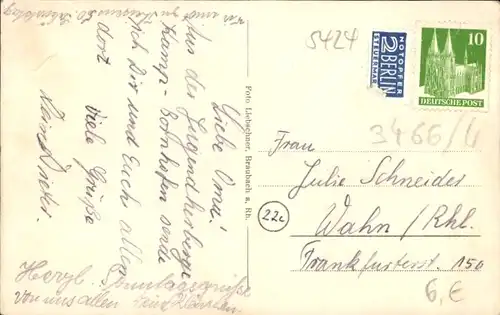 Liebe Oma!
Aus der Jugendherberge
Kamp-Bornhofen sende
ich Dir und Euch allen
dort
viele Grüße
Dein Dieter.
Herzl. Sonntagsgrüße
von uns allen
Foto Liebschner, Braubach a. Rh.
5424
NOTOPFER
2 BERLIN
STEUERMARKE
10
DEUTSCHE POST
3466/4
Frau
Julie Schneider
22c
Wahn/Rhl.
Frankfurterst. 150
6,€